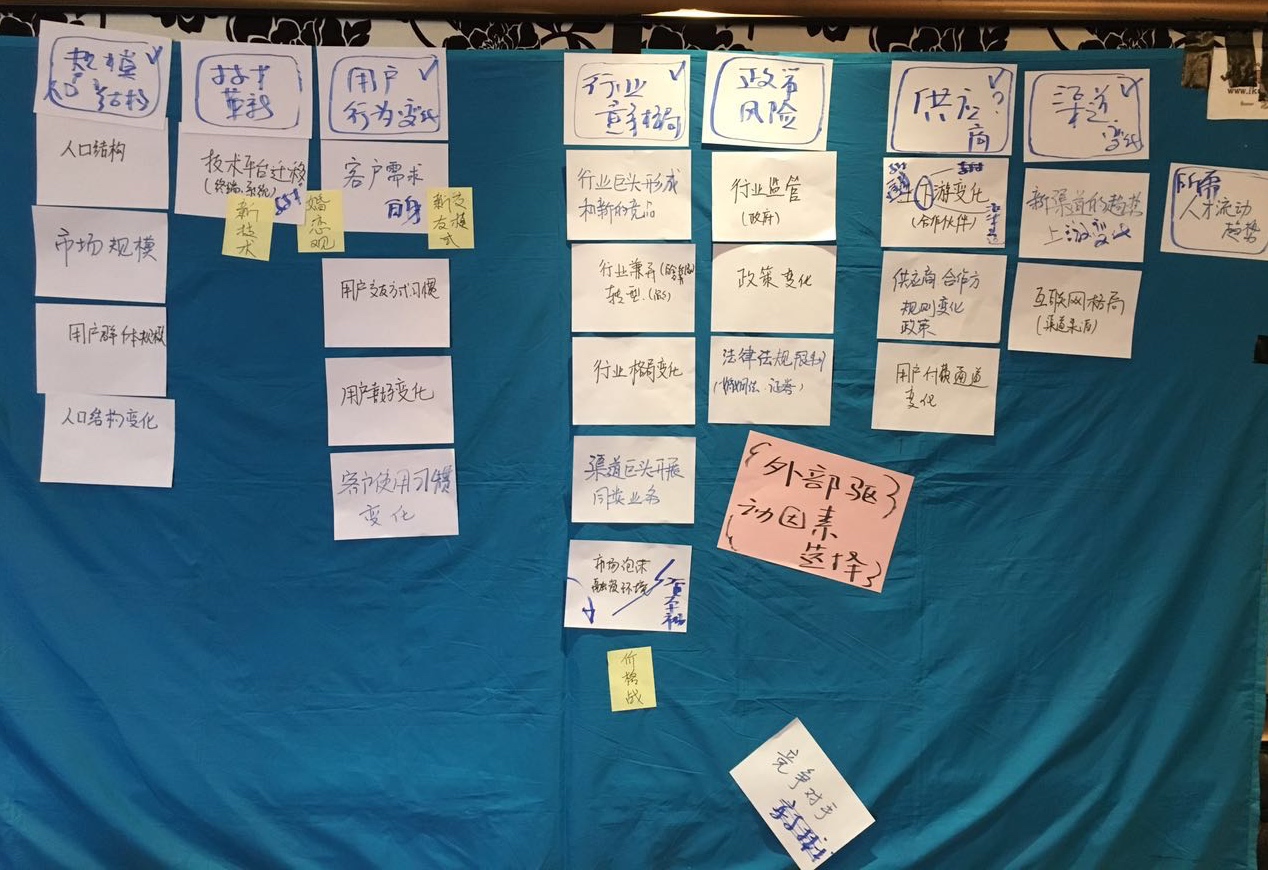 规模
人口结构
人口结构
市场规模
用户群体规模
人口结构变化
技术
革新
技术平台迁移
(终端、系统)
新技术
用户
行为变化
客户需求
自身
婚恋观
新交友模式
用户交友方式习惯
用户喜好变化
客户使用习惯
变化
行业
竞争格局
行业巨头形成
和新的竞品
行业兼并
转型
行业格局变化
渠道巨头开展
同类业务
市场泡沫
融资环境
资本市场
价格战
政策
风险
行业监管
(政府)
政策变化
法律法规限制
(婚姻法、证券)
供应?
商
上游变化
(合作伙伴)
供应商 合作方
规则变化
政策
用户付费通道
变化
渠道
变化
新渠道的趋势
上游变化
互联网格局
(渠道来源)
所需
人才流动
趋势
{外部驱
动因素
选择}
竞争对手